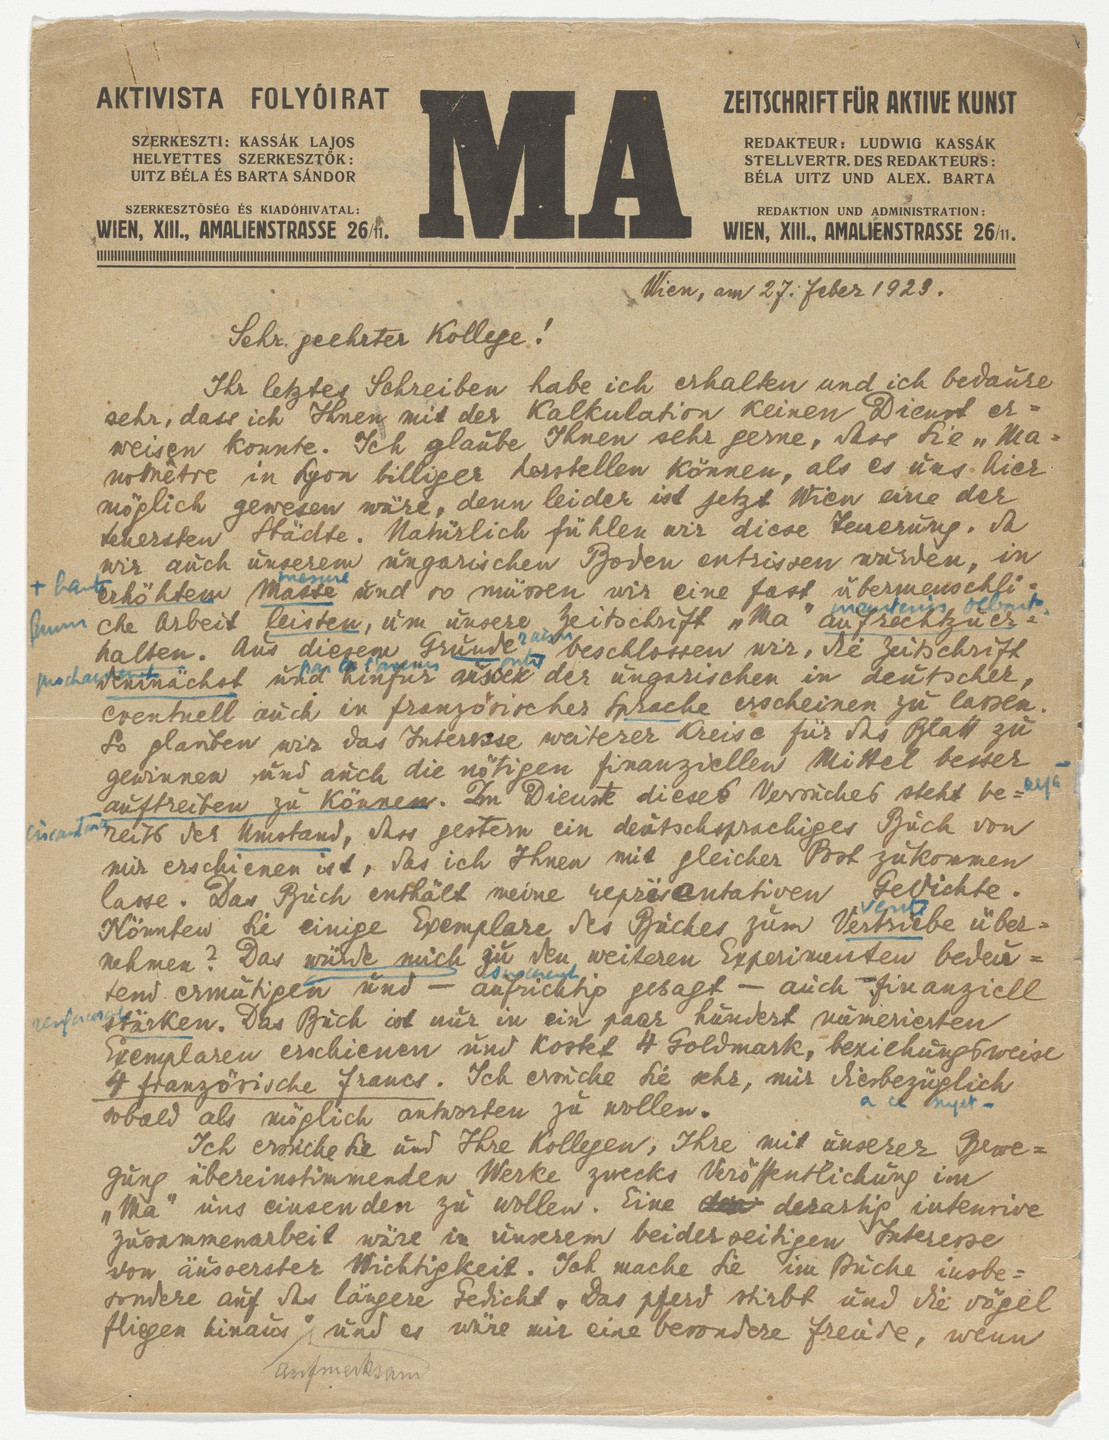 AKTIVISTA FOLYÓIRAT
SZERKESZTI: KASSÁK LAJOS
HELYETTES SZERKESZTŐK:
UITZ BÉLA ÉS BARTA SÁNDOR
SZERKESZTŐSÉG ÉS KIADÓHIVATAL:
WIEN, XIII., AMALIENSTRASSE 26/11.
MA
ZEITSCHRIFT FÜR AKTIVE KUNST
REDAKTEUR: LUDWIG KASSÁK
STELLVERTR. DES REDAKTEURS:
BÉLA UITZ UND ALEX. BARTA
REDAKTION UND ADMINISTRATION:
WIEN, XIII., AMALIENSTRASSE 26/11.
Wien, am 27. Feber 1923.
Sehr geehrter Kollege!
Ihr letztes Schreiben habe ich erhalten und ich bedaure
sehr, dass ich Ihnen mit der Kalkulation keinen Dienst er=
weisen konnte. Ich glaube Ihnen sehr gerne, dass Sie „Ma=
nomètre in Lyon billiger herstellen können, als es uns hier
möglich gewesen wäre, denn leider ist jetzt Wien eine der
teuersten Städte. Natürlich fühlen wir diese Teuerung, da
wir auch unserem ungarischen Boden entrissen wurden, in
+ haute
mesure
erhöhtem Masse und so müssen wir eine fast übermenschli=
maintenir
che Arbeit leisten, um unsere Zeitschrift „Ma" aufrechtzuer=
raison
halten. Aus diesem Grunde beschlossen wir, die Zeitschrift
outre
demnächst und hinfür ausser der ungarischen in deutscher,
eventuell auch in französischer Sprache erscheinen zu lassen.
So glauben wir das Interesse weiterer Kreise für das Blatt zu
gewinnen und auch die nötigen finanziellen Mittel besser
auftreiben zu können. Im Dienste dieses Versuches steht be=
reits der Umstand, dass gestern ein deutschsprachiges Buch von
mir erschienen ist, das ich Ihnen mit gleicher Post zukommen
lasse. Das Buch enthält meine repräsentativen Gedichte.
vente
Könnten Sie einige Exemplare des Buches zum Vertriebe über=
nehmen? Das würde mich zu den weiteren Experimenten bedeu=
tend ermutigen und – aufrichtig gesagt – auch finanziell
stärken. Das Buch ist nur in ein paar hundert numerierten
Exemplaren erschienen und kostet 4 Goldmark, beziehungsweise
4 französische Francs. Ich ersuche Sie sehr, mir diesbezüglich
à ce sujet –
sobald als möglich antworten zu wollen.
Ich ersuche Sie und Ihre Kollegen, Ihre mit unserer Bewe=
gung übereinstimmenden Werke zwecks Veröffentlichung im
„Ma" uns einsenden zu wollen. Eine derartig intensive
Zusammenarbeit wäre in unserem beiderseitigen Interesse
von äusserster Wichtigkeit. Ich mache Sie im Buche insbe=
sondere auf das längere Gedicht „Das pferd stirbt und die vögel
fliegen hinaus" und es wäre mir eine besondere Freude, wenn
aufmerksam